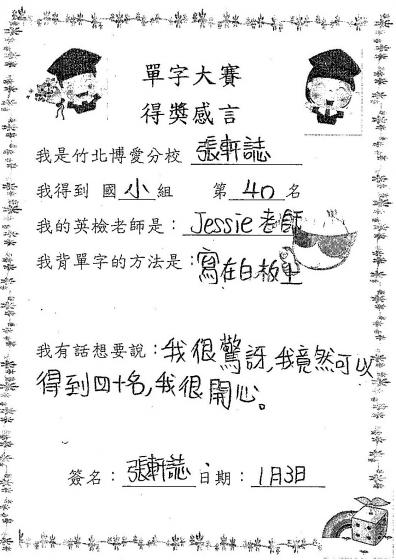 單字大賽
得獎感言
我是竹北博愛分校 張軒誌
我得到 國小組 第 40 名
我的英檢老師是：Jessie老師
我背單字的方法是：寫在白板上
我有話想要說：我很驚訝,我竟然可以
得到四十名,我很開心。
簽名：張軒誌 日期：1月3日